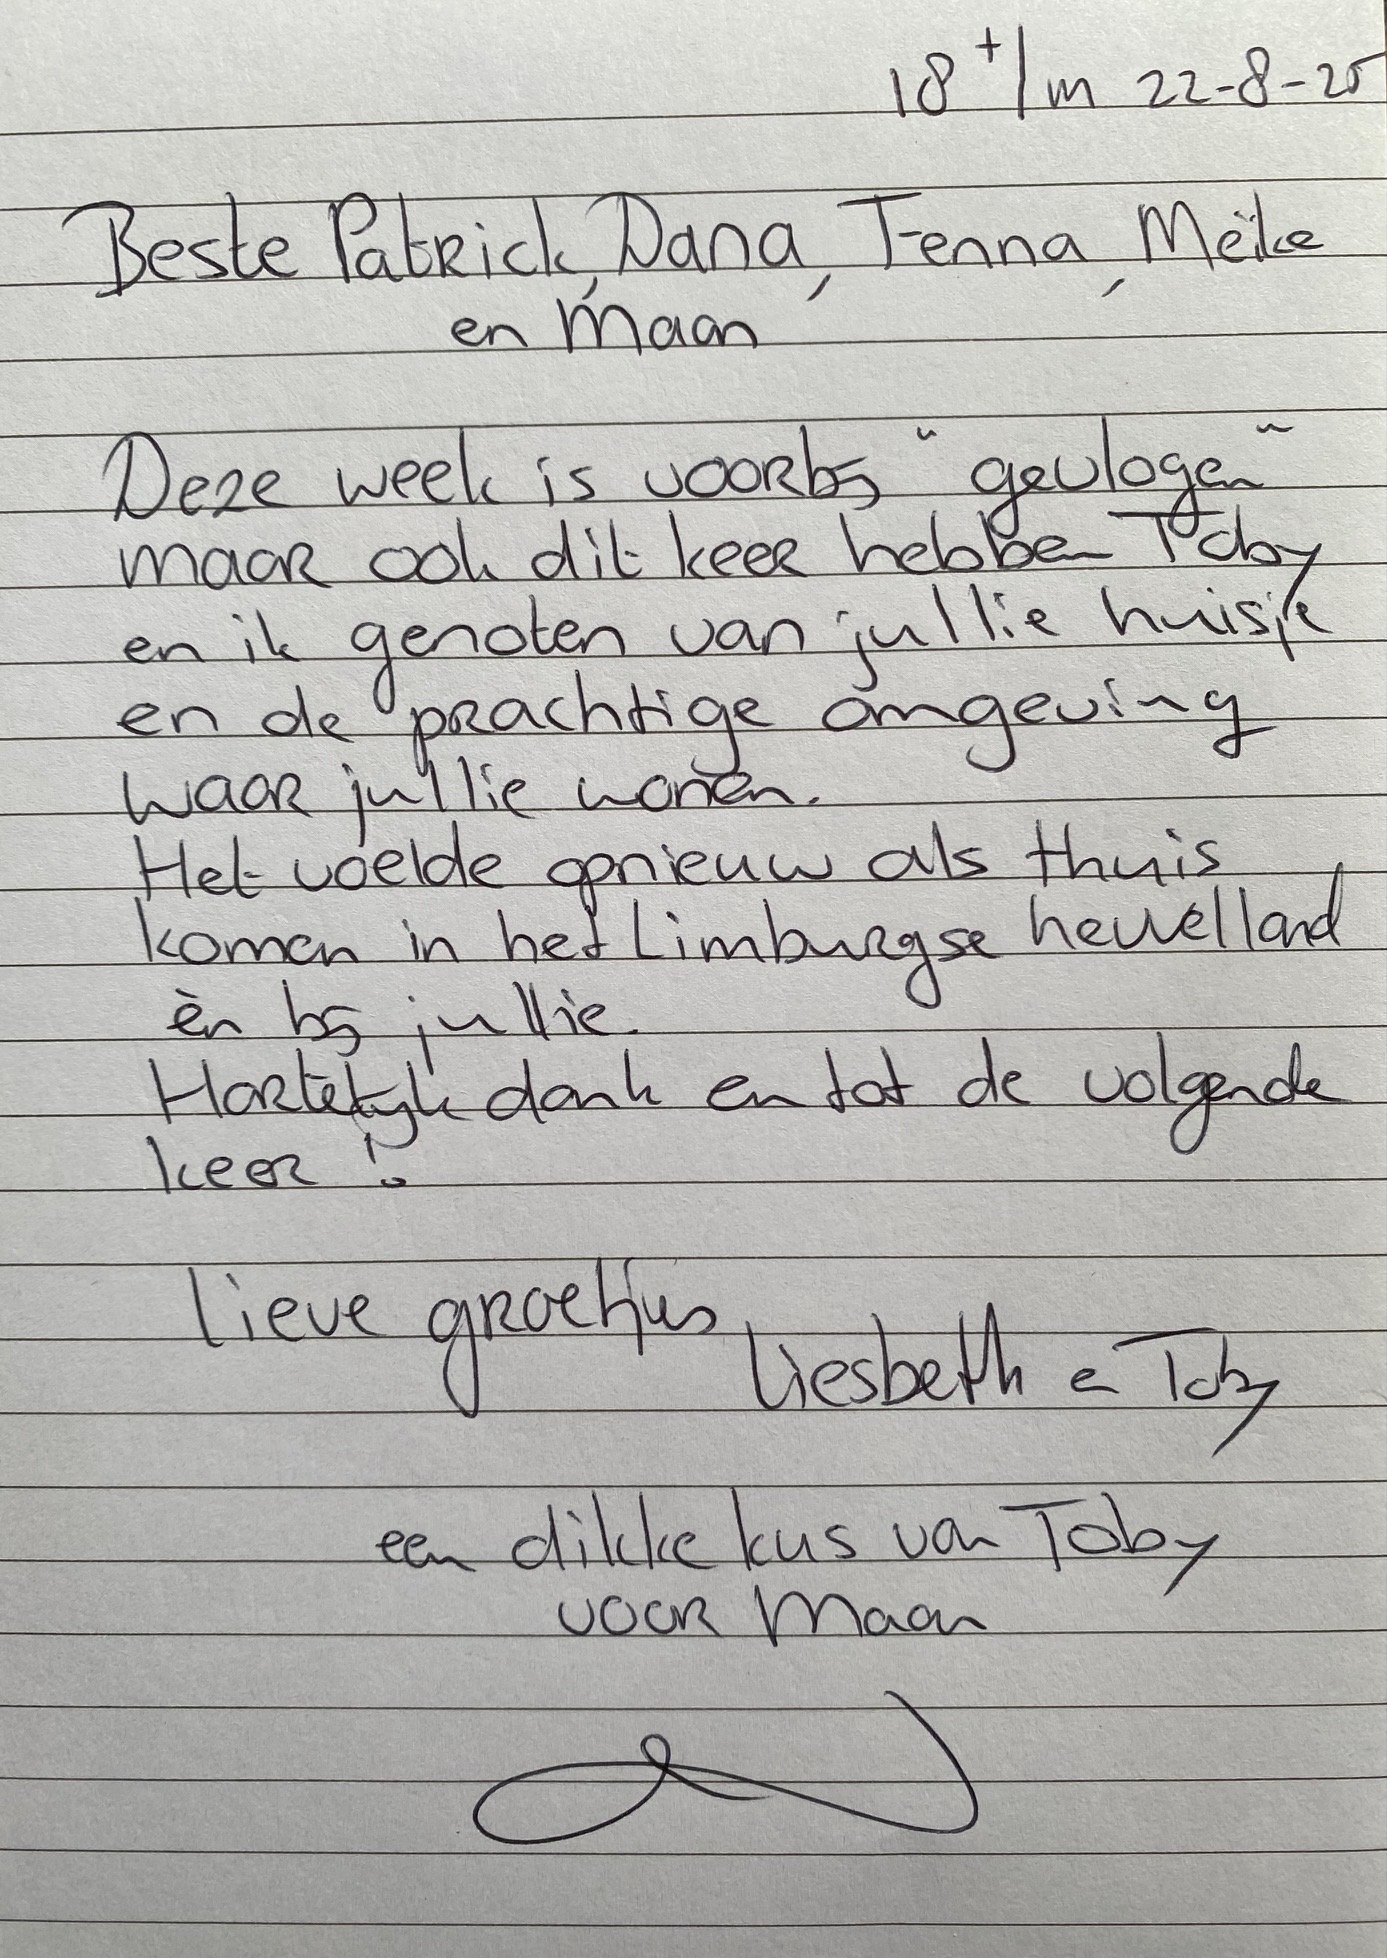 18 t/m 22-8-25
Beste Patrick, Dana, Fenna, Meike
en Maan
Deze week is voorbij "gevlogen"
maar ook dit keer hebben Toby
en ik genoten van jullie huisje
en de prachtige omgeving
waar jullie wonen.
Het voelde opnieuw als thuis
komen in het Limburgse heuvelland
èn bij jullie.
Hartelijk dank en tot de volgende
keer!
Lieve groetjes,
Liesbeth e Toby
een dikke kus van Toby
voor Maan